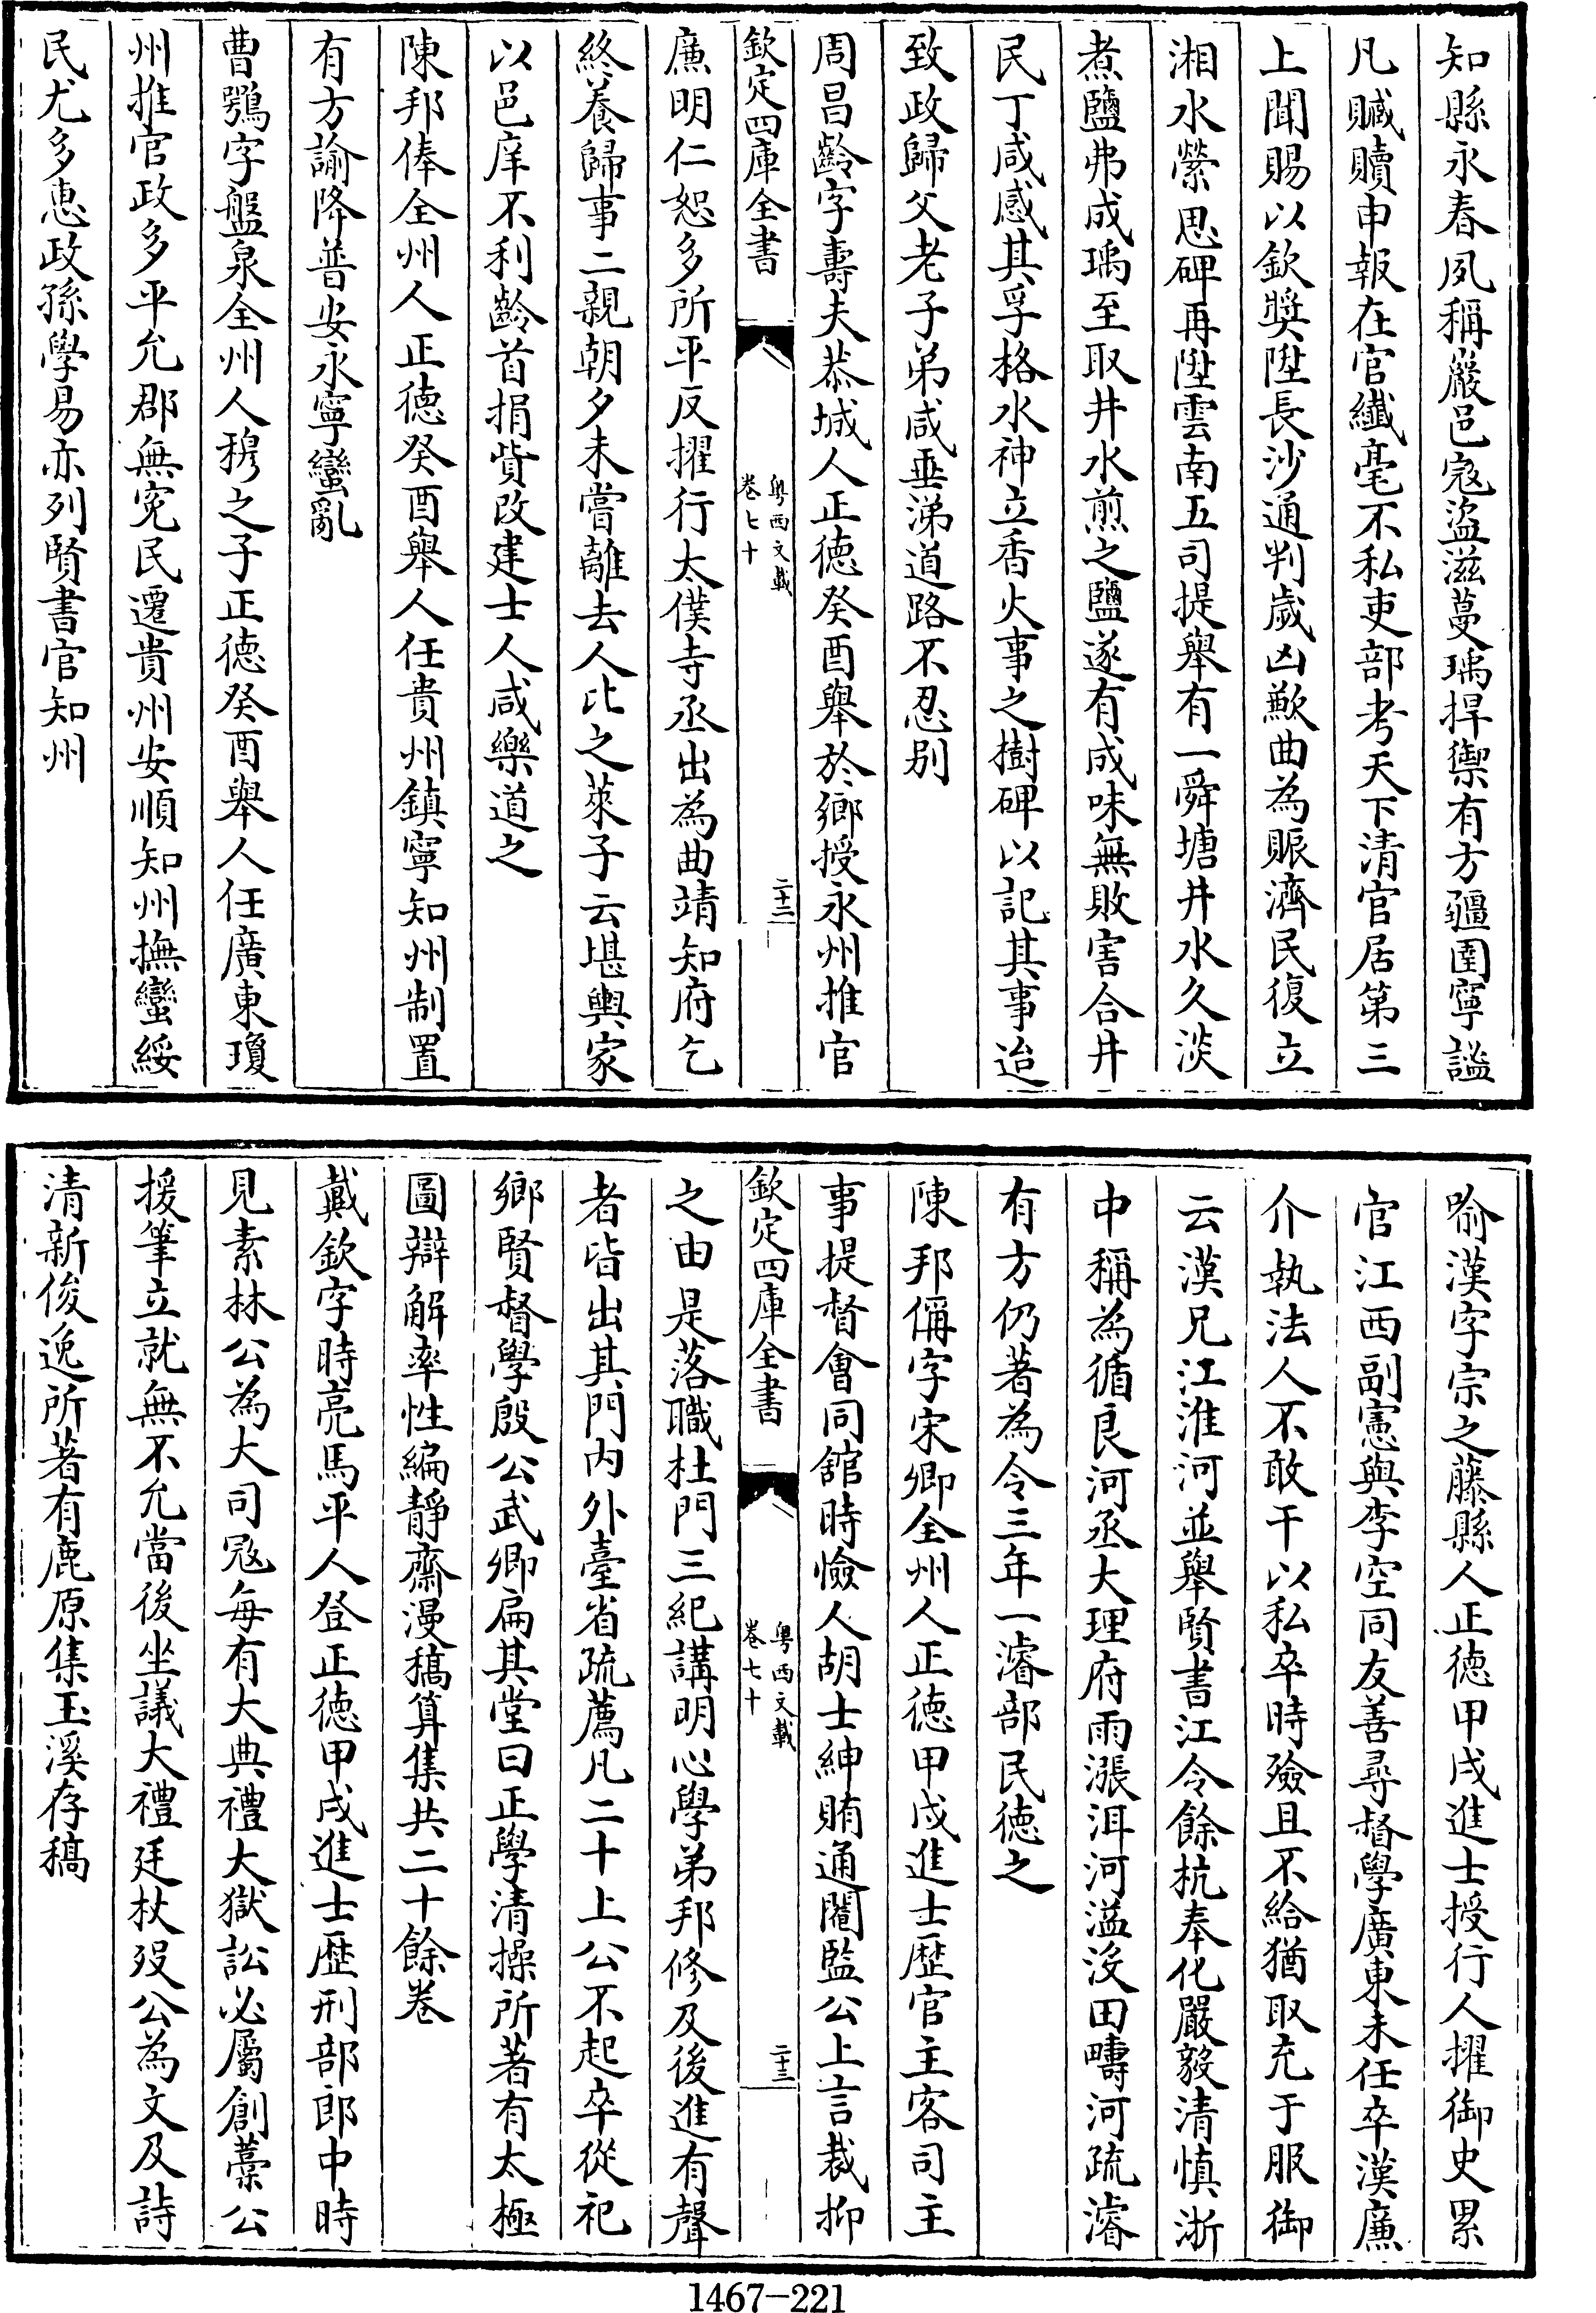 知縣永春夙稱巖邑寇盗滋蔓瑀捍禦有方疆圉寧謐
凡贓贖申報在官纖毫不私吏部考天下清官居第三
上聞賜以欽獎陞長沙通判歲凶歉曲為賑濟民復立
湘水縈思碑再陞雲南五司提舉有一舜塘井水久淡
煮鹽弗成瑀至取井水煎之鹽遂有成味無敗害合井
民丁咸感其孚格水神立香火事之樹碑以記其事迨
致政歸父老子弟咸垂涕道路不忍别
周昌齡字壽夫恭城人正德癸酉舉於鄉授永州推官
欽定四庫全書
粤西文載
卷七十
二十二
廉明仁恕多所平反擢行太僕寺丞出為曲靖知府乞
終養歸事二親朝夕未嘗離去人比之萊子云堪輿家
以邑庠不利齡首捐貲改建士人咸樂道之
陳邦俸全州人正德癸酉舉人任貴州鎮寧知州制置
有方諭降普安永寧蠻亂
曹鶚字盤泉全州人穆之子正德癸酉舉人任廣東瓊
州推官政多平允郡無寃民遷貴州安順知州撫蠻綏
民尤多惠政孫學易亦列賢書官知州
喻漢字宗之藤縣人正德甲戌進士授行人擢御史累
官江西副憲與李空同友善尋督學廣東未任卒漢廉
介執法人不敢干以私卒時殮且不給猶取充于服御
云漢兄江淮河並舉賢書江令餘杭奉化嚴毅清慎浙
中稱為循良河丞大理府雨漲洱河溢沒田疇河疏濬
有方仍著為令三年一濬部民德之
陳邦偁字宋卿全州人正德甲戌進士歴官主客司主
事提督會同舘時憸人胡士紳賄通閹監公上言裁抑
欽定四庫全書
粤西文載
卷七十
二十三
之由是落職杜門三紀講明心學弟邦修及後進有聲
者皆出其門内外臺省疏薦凡二十上公不起卒從祀
鄉賢督學殷公武卿扁其堂曰正學清操所著有太極
圖辯解率性編靜齋漫稿算集共二十餘卷
戴欽字時亮馬平人登正德甲戌進士歴刑部郎中時
見素林公為大司寇每有大典禮大獄訟必屬創藁公
援筆立就無不允當後坐議大禮廷杖歿公為文及詩
清新俊逸所著有鹿原集玉溪存稿
1467-221